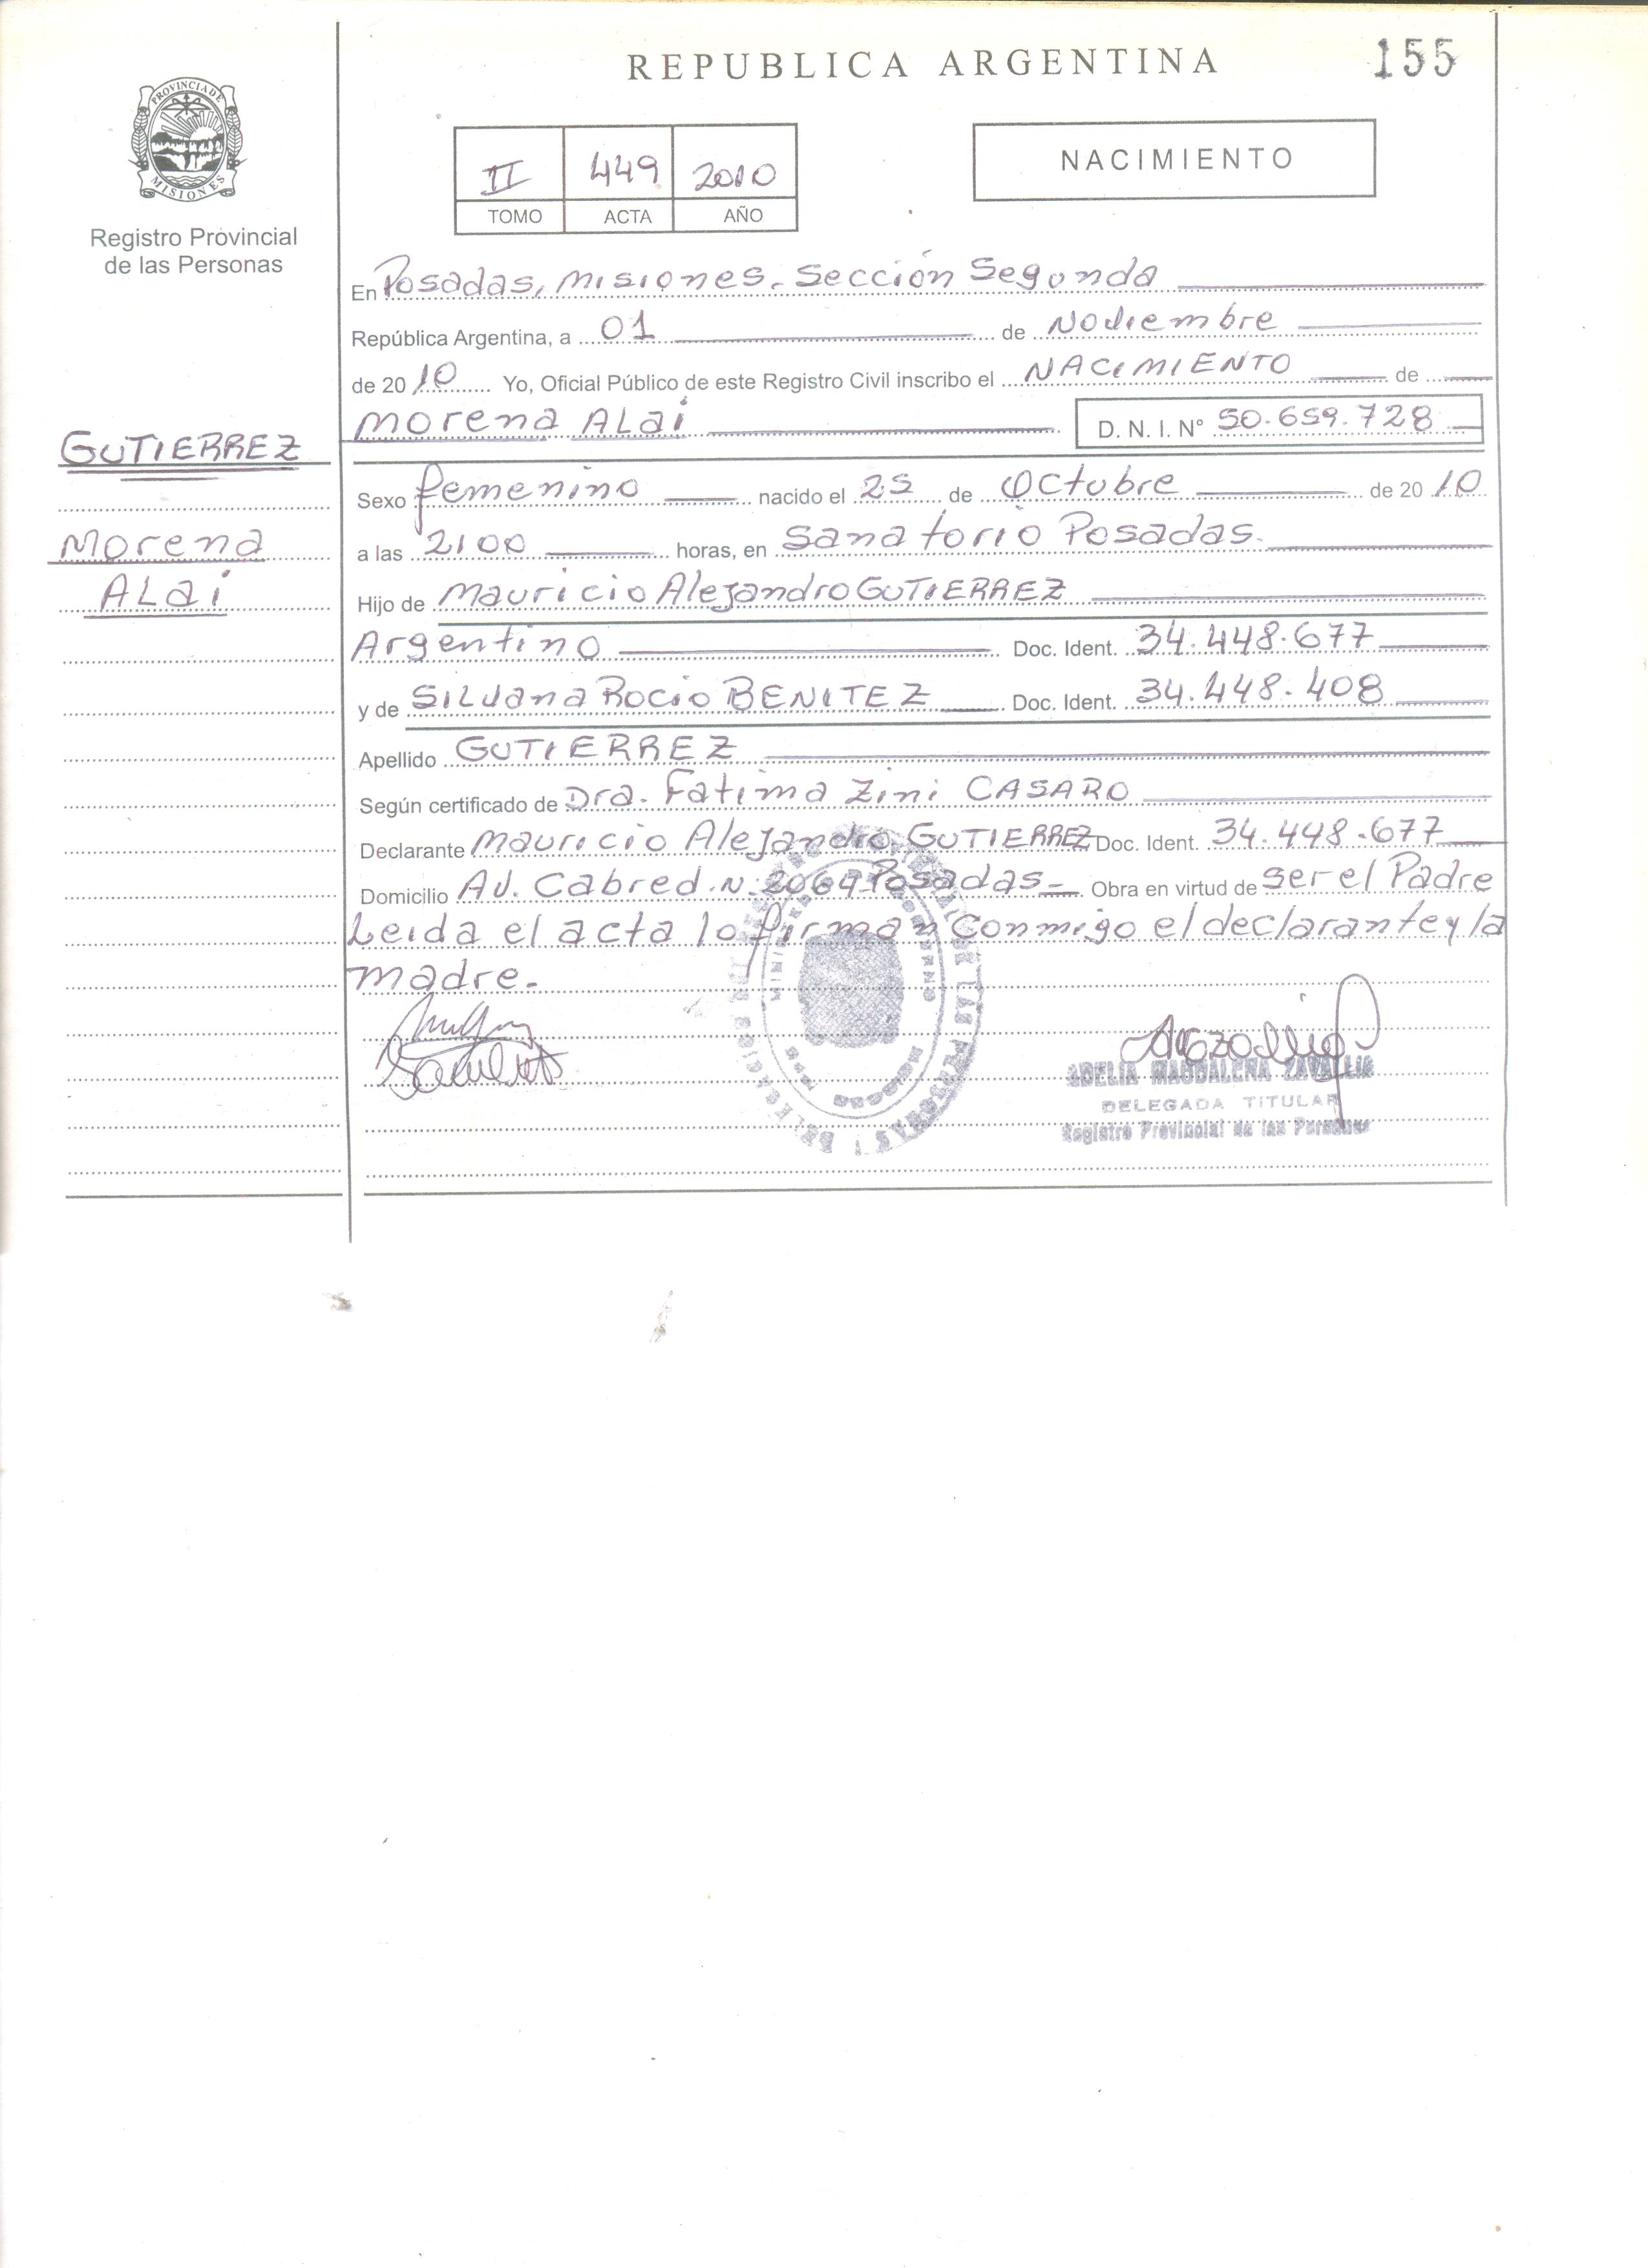 REPUBLICA ARGENTINA
155
PROVINCIA DE
MISIONES
Registro Provincial
de las Personas
II 449 2010
TOMO ACTA AÑO
NACIMIENTO
En Posadas, Misiones. Sección Segunda
República Argentina, a 01 de Noviembre
de 2010 Yo, Oficial Público de este Registro Civil inscribo el NACIMIENTO de
Morena ALai D. N. I. N° 50.659.728
GUTIERREZ
Morena
ALai
Sexo femenino nacido el 25 de Octubre de 2010
a las 2100 horas, en Sanatorio Posadas.
Hijo de Mauricio Alejandro GUTIERREZ
Argentino Doc. Ident. 34.448.677
y de SILvana Rocio BENITEZ Doc. Ident. 34.448.408
Apellido GUTIERREZ
Según certificado de Dra. Fatima Zini CASARO
Declarante Mauricio Alejandro GUTIERREZ Doc. Ident. 34.448.677
Domicilio Av. Cabred. N: 2064 Posadas Obra en virtud de ser el Padre
Leida el acta lo firman conmigo el declarante y la
madre.
ADELIA MAGDALENA ZAVALLIA
DELEGADA TITULAR
Registro Provincial de las Personas